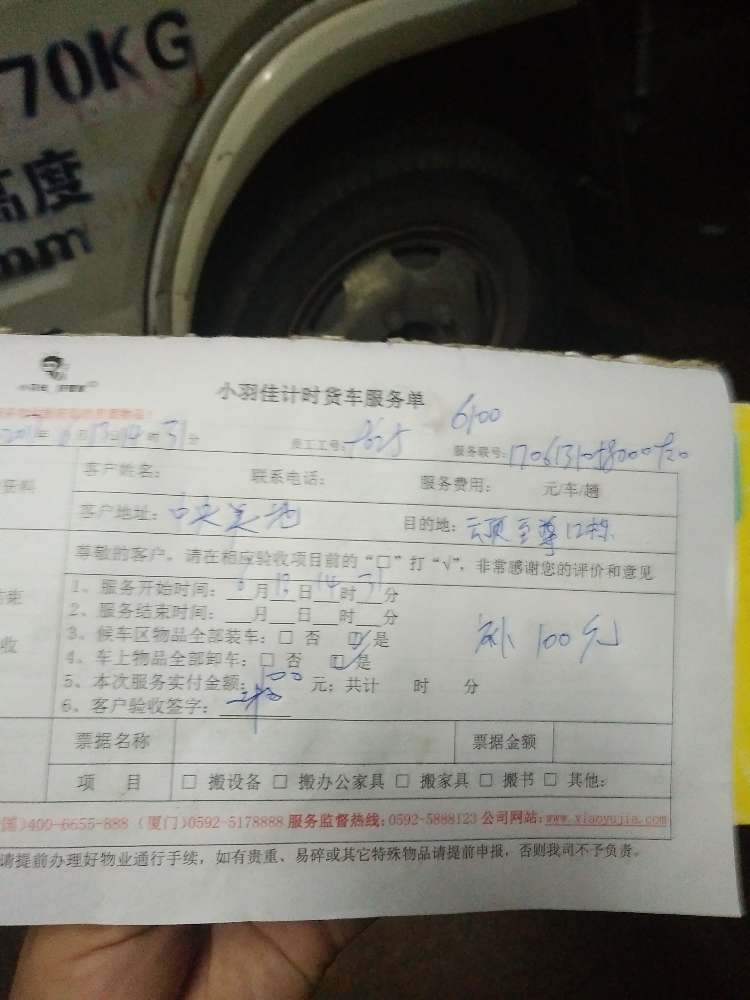 70KG
高度
mm
小羽佳计时货车服务单
6100
6月13日14时31分
员工工号:
服务联号:
客户姓名: 联系电话: 服务费用: 元/车/趟
客户地址: 中央美地 目的地: 云顶至尊12栋
尊敬的客户，请在相应验收项目前的“□”打“√”，非常感谢您的评价和意见
1、服务开始时间: 6月13日14时31分
2、服务结束时间: 月 日 时 分
3、候车区物品全部装车: □ 否 ☑是
补100元
4、车上物品全部卸车: □ 否 ☑是
5、本次服务实付金额: 100 元; 共计 时 分
6、客户验收签字:
票据名称 票据金额
项 目 □ 搬设备 □ 搬办公家具 □ 搬家具 □ 搬书 □ 其他:
国)400-6655-888 (厦门)0592-5178888 服务监督热线:0592-5888123 公司网站:www.xiaoyujia.com
请提前办理好物业通行手续，如有贵重、易碎或其它特殊物品请提前申报，否则我司不予负责。